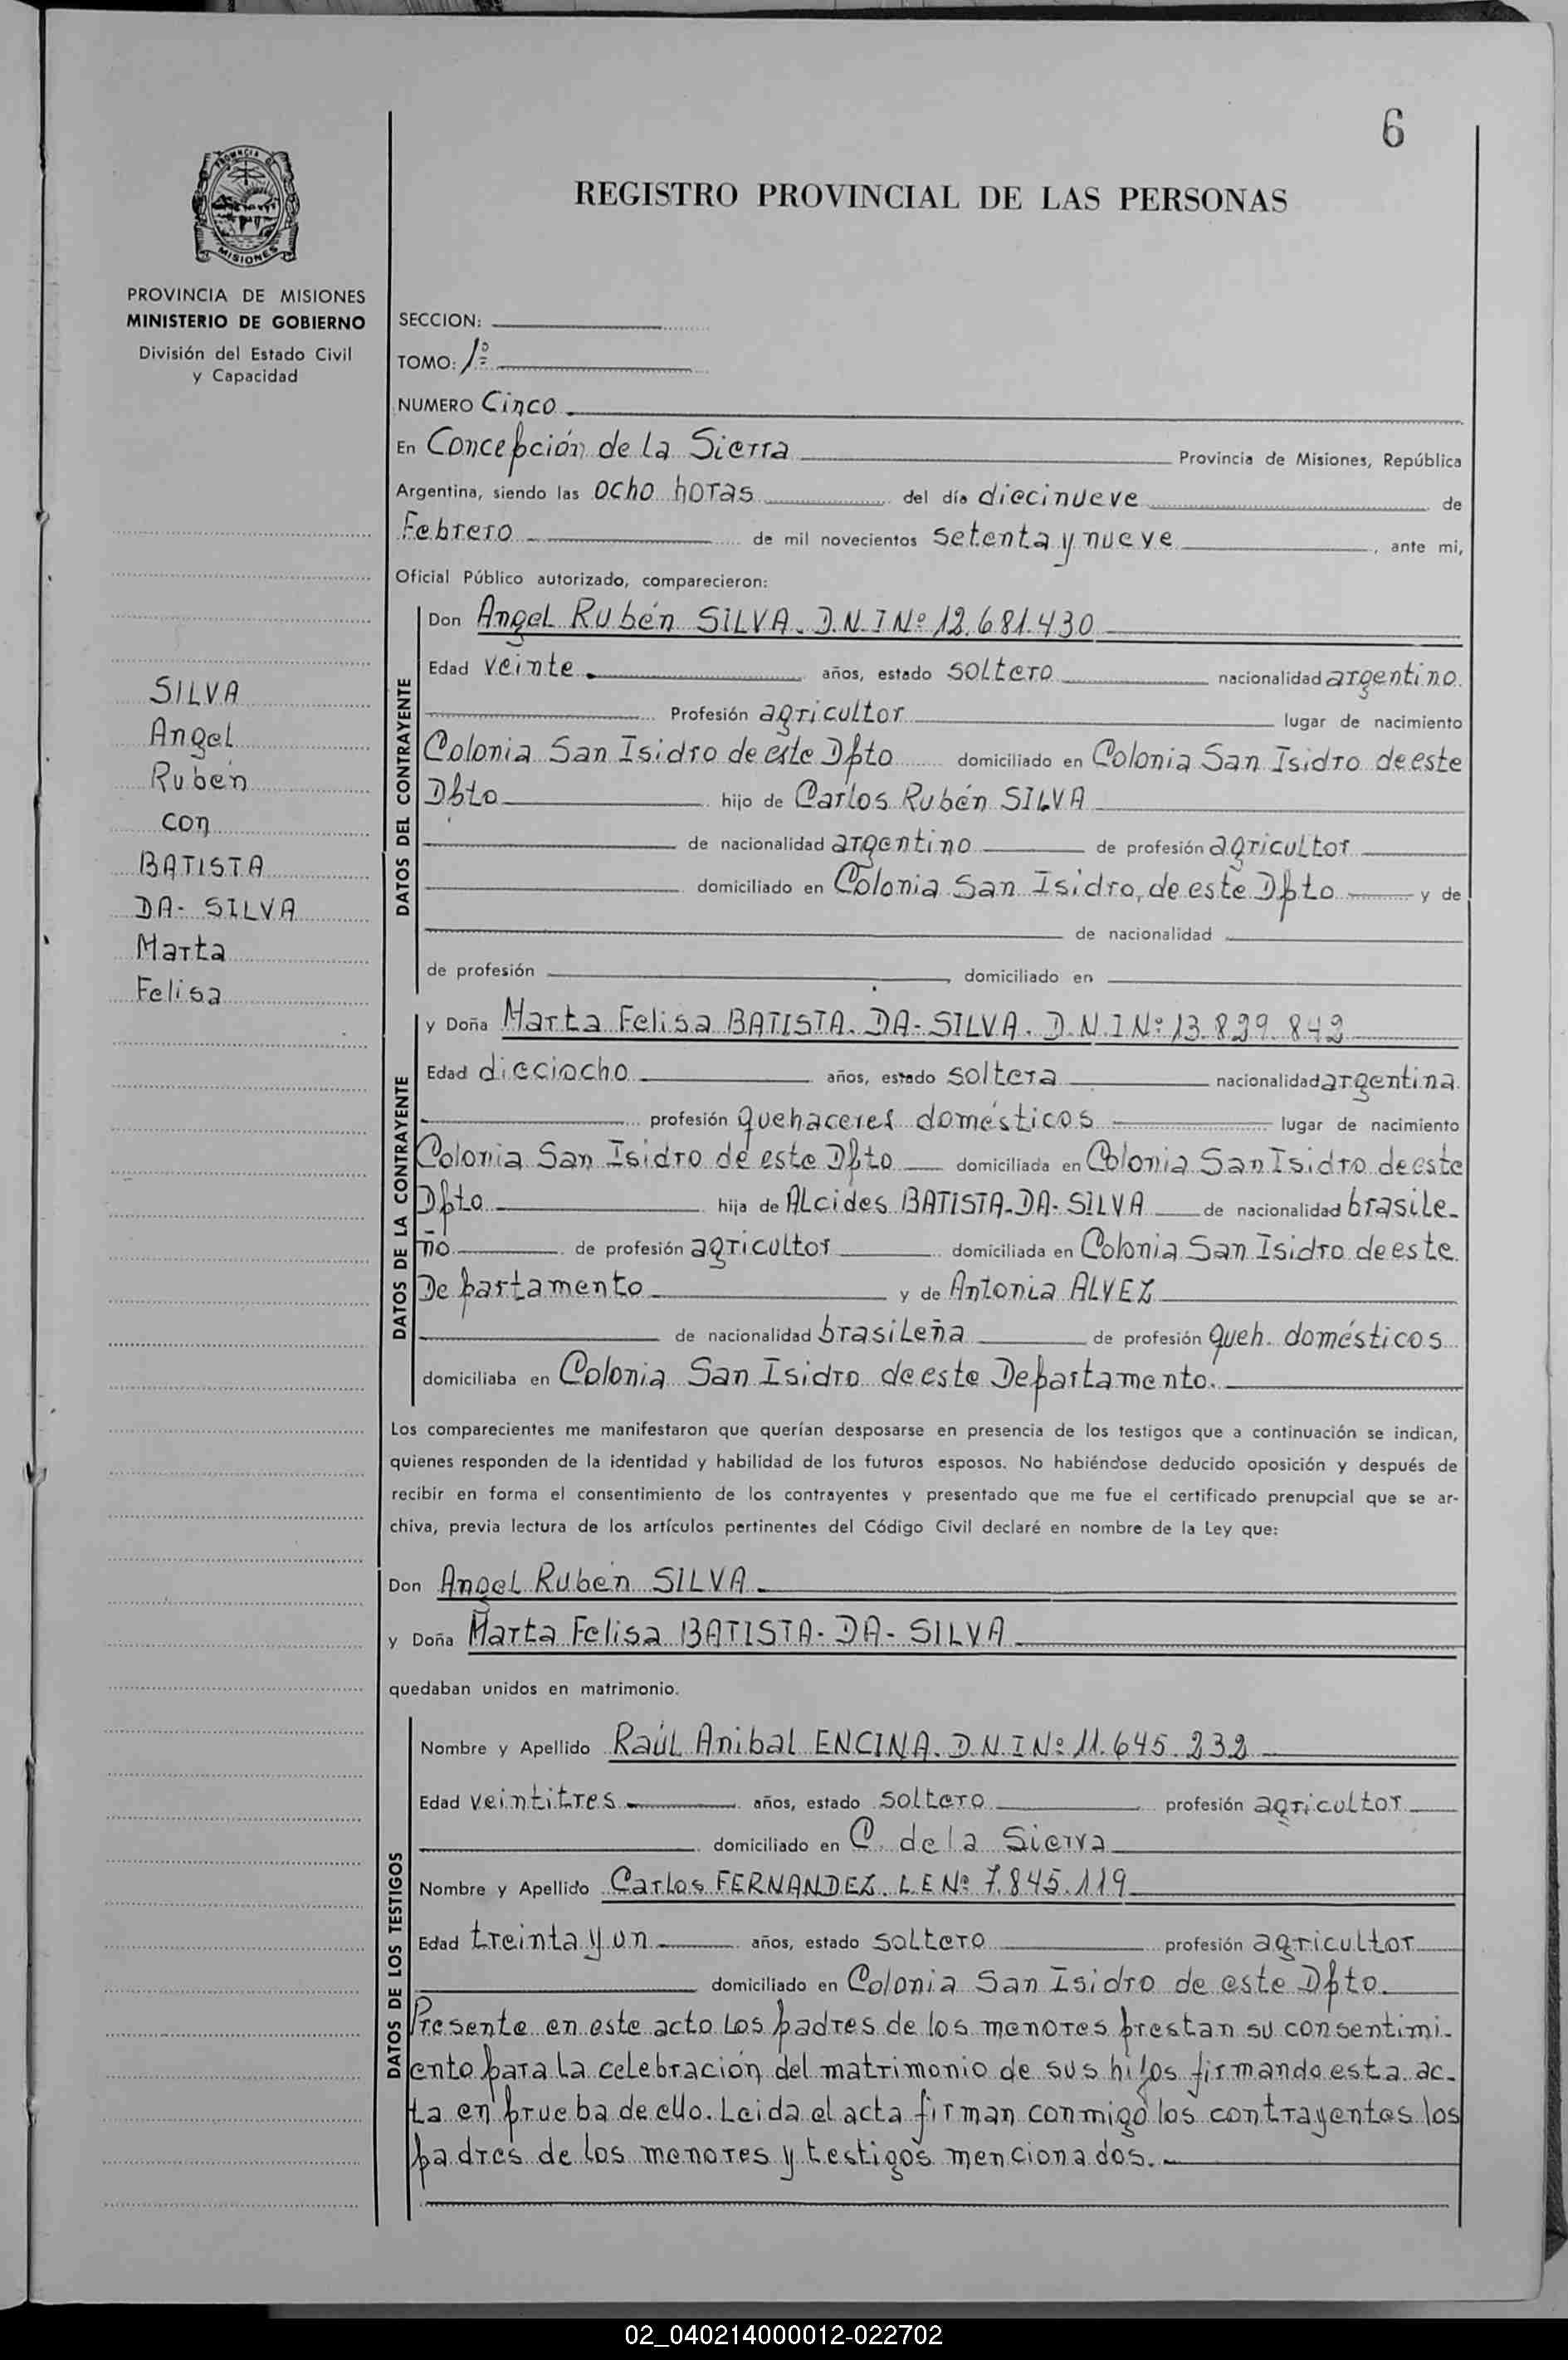 6
PROVINCIA DE
MISIONES
REGISTRO PROVINCIAL DE LAS PERSONAS
PROVINCIA DE MISIONES
MINISTERIO DE GOBIERNO
División del Estado Civil
y Capacidad
SILVA
Angel
Rubén
con
BATISTA
DA- SILVA
Marta
Felisa
SECCION:
TOMO: 1º
NUMERO Cinco.
En Concepción de la Sierra Provincia de Misiones, República
Argentina, siendo las ocho horas del día diecinueve de
Febrero de mil novecientos setenta y nueve, ante mi,
Oficial Público autorizado, comparecieron:
DATOS DEL CONTRAYENTE
Don Angel Rubén SILVA. D.N.I Nº 12.681.430
Edad veinte. años, estado soltero nacionalidad argentino.
Profesión agricultor lugar de nacimiento
Colonia San Isidro de este Dpto domiciliado en Colonia San Isidro de este
Dpto hijo de Carlos Rubén SILVA
de nacionalidad argentino de profesión agricultor
domiciliado en Colonia San Isidro, de este Dpto y de
de nacionalidad
de profesión , domiciliado en
DATOS DE LA CONTRAYENTE
y Doña Marta Felisa BATISTA- DA- SILVA. D.N.I Nº 13.829.842
Edad dieciocho años, estado soltera nacionalidad argentina.
profesión quehaceres domésticos lugar de nacimiento
Colonia San Isidro de este Dpto domiciliada en Colonia San Isidro de este
Dpto hija de Alcides BATISTA-DA-SILVA de nacionalidad brasile-
ño de profesión agricultor domiciliada en Colonia San Isidro de este
Departamento y de Antonia ALVEZ
de nacionalidad brasileña de profesión queh. domésticos
domiciliaba en Colonia San Isidro de este Departamento.
Los comparecientes me manifestaron que querían desposarse en presencia de los testigos que a continuación se indican,
quienes responden de la identidad y habilidad de los futuros esposos. No habiéndose deducido oposición y después de
recibir en forma el consentimiento de los contrayentes y presentado que me fue el certificado prenupcial que se ar-
chiva, previa lectura de los artículos pertinentes del Código Civil declaré en nombre de la Ley que:
Don Angel Rubén SILVA.
y Doña Marta Felisa BATISTA- DA- SILVA
quedaban unidos en matrimonio.
DATOS DE LOS TESTIGOS
Nombre y Apellido Raúl Anibal ENCINA. D.N.I Nº 11.645.232
Edad veintitres años, estado soltero profesión agricultor
domiciliado en C. de la Sierra
Nombre y Apellido Carlos FERNANDEZ. L.E Nº 7.845.119
Edad treinta y un años, estado soltero profesión agricultor
domiciliado en Colonia San Isidro de este Dpto.
Presente en este acto los padres de los menores prestan su consentimi-
ento para la celebración del matrimonio de sus hijos firmando esta ac-
ta en prueba de ello. Leida el acta firman conmigo los contrayentes los
padres de los menores y testigos mencionados.
02_040214000012-022702